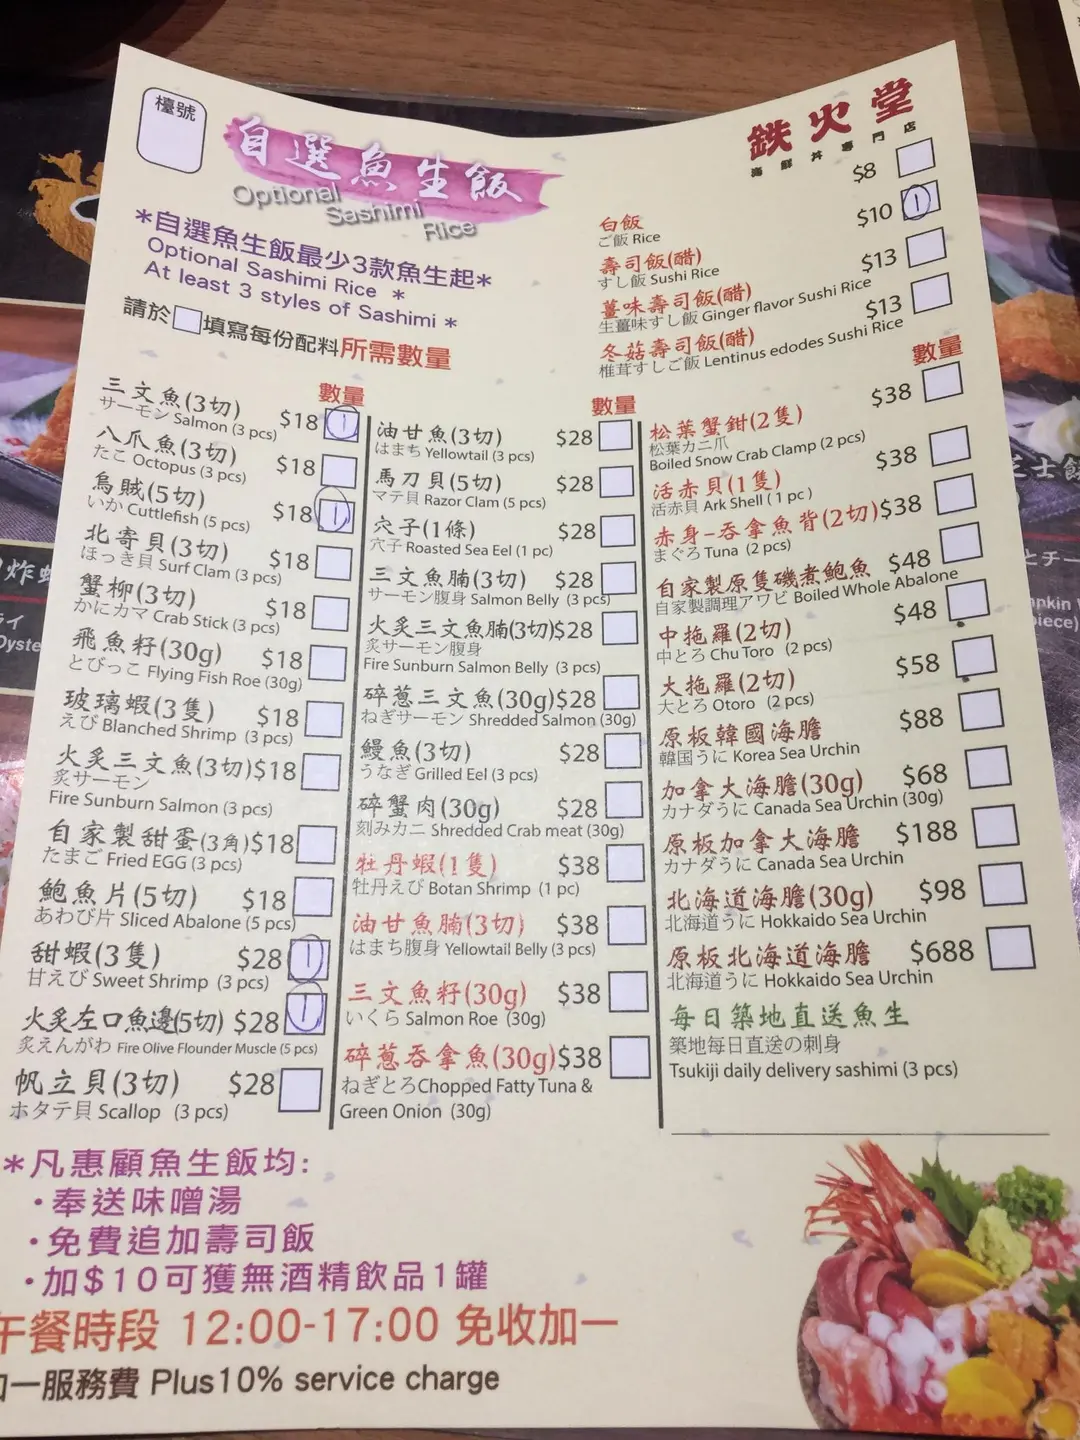 檯號
自選魚生飯
Optional
Sashimi
Rice
鉄火堂
海鮮丼專門店
*自選魚生飯最少3款魚生起*
Optional Sashimi Rice *
At least 3 styles of Sashimi *
請於□填寫每份配料所需數量
$8
白飯
ご飯 Rice
$10 1
壽司飯(醋)
すし飯 Sushi Rice
$13
薑味壽司飯(醋)
生薑味すし飯 Ginger flavor Sushi Rice
$13
冬菇壽司飯(醋)
椎茸すしご飯 Lentinus edodes Sushi Rice
數量
三文魚(3切) $18 1
サーモン Salmon (3 pcs)
八爪魚(3切) $18
たこ Octopus (3 pcs)
烏賊(5切) $18 1
いか Cuttlefish (5 pcs)
北寄貝(3切) $18
ほっき貝 Surf Clam (3 pcs)
蟹柳(3切) $18
かにカマ Crab Stick (3 pcs)
飛魚籽(30g) $18
とびっこ Flying Fish Roe (30g)
玻璃蝦(3隻) $18
えび Blanched Shrimp (3 pcs)
火炙三文魚(3切)$18
炙サーモン
Fire Sunburn Salmon (3 pcs)
自家製甜蛋(3角)$18
たまご Fried EGG (3 pcs)
鮑魚片(5切) $18
あわび片 Sliced Abalone (5 pcs)
甜蝦(3隻) $28 1
甘えび Sweet Shrimp (3 pcs)
火炙左口魚邊(5切) $28 1
炙えんがわ Fire Olive Flounder Muscle (5 pcs)
帆立貝(3切) $28
ホタテ貝 Scallop (3 pcs)
數量
油甘魚(3切) $28
はまち Yellowtail (3 pcs)
馬刀貝(5切) $28
マテ貝 Razor Clam (5 pcs)
穴子(1條) $28
穴子 Roasted Sea Eel (1 pc)
三文魚腩(3切) $28
サーモン腹身 Salmon Belly (3 pcs)
火炙三文魚腩(3切)$28
炙サーモン腹身
Fire Sunburn Salmon Belly (3 pcs)
碎蔥三文魚(30g)$28
ねぎサーモン Shredded Salmon (30g)
鰻魚(3切) $28
うなぎ Grilled Eel (3 pcs)
碎蟹肉(30g) $28
刻みカニ Shredded Crab meat (30g)
牡丹蝦(1隻) $38
牡丹えび Botan Shrimp (1 pc)
油甘魚腩(3切) $38
はまち腹身 Yellowtail Belly (3 pcs)
三文魚籽(30g) $38
いくら Salmon Roe (30g)
碎蔥吞拿魚(30g)$38
ねぎとろ Chopped Fatty Tuna &
Green Onion (30g)
數量
松葉蟹鉗(2隻) $38
松葉カニ爪
Boiled Snow Crab Clamp (2 pcs)
活赤貝(1隻) $38
活赤貝 Ark Shell (1 pc)
赤身-吞拿魚背(2切)$38
まぐろ Tuna (2 pcs)
自家製原隻磯煮鮑魚 $48
自家製調理アワビ Boiled Whole Abalone
中拖羅(2切) $48
中とろ Chu Toro (2 pcs)
大拖羅(2切) $58
大とろ Otoro (2 pcs)
原板韓國海膽 $88
韓国うに Korea Sea Urchin
加拿大海膽(30g) $68
カナダうに Canada Sea Urchin (30g)
原板加拿大海膽 $188
カナダうに Canada Sea Urchin
北海道海膽(30g) $98
北海道うに Hokkaido Sea Urchin
原板北海道海膽 $688
北海道うに Hokkaido Sea Urchin
每日築地直送魚生
築地每日直送の刺身
Tsukiji daily delivery sashimi (3 pcs)
*凡惠顧魚生飯均:
・奉送味噌湯
・免費追加壽司飯
・加$10可獲無酒精飲品1罐
午餐時段 12:00-17:00 免收加一
加一服務費 Plus10% service charge